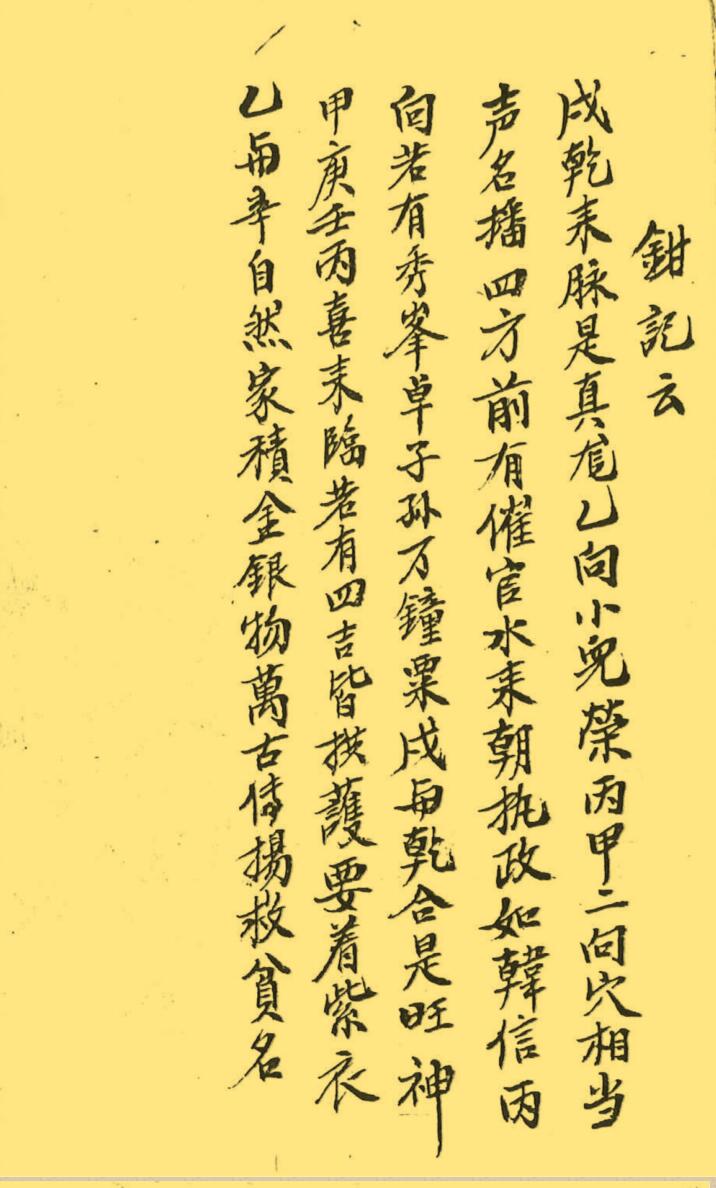 鉗記云
戌乾来脉是真龙乙向小兒榮丙甲二向穴相当
声名播四方前有催官水来朝执政如韓信丙
向若有秀峯卓子孙万鐘粟戌与乾合是旺神
甲庚壬丙喜来臨若有四吉皆拱護要着紫衣
乙与辛自然家積金銀物萬古傳揚救貧名